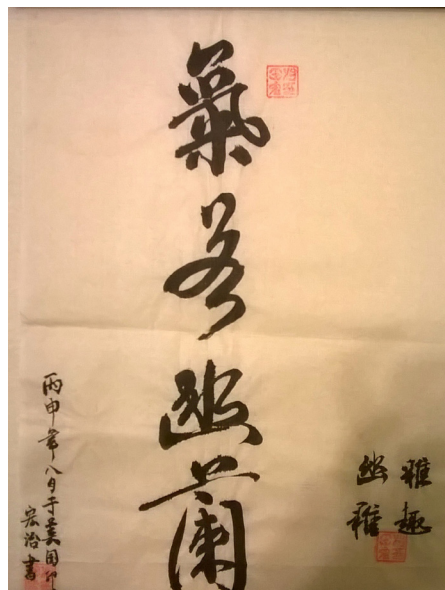 氣若幽蘭
雅趣
幽雅
丙申年八月于美国
宏治書